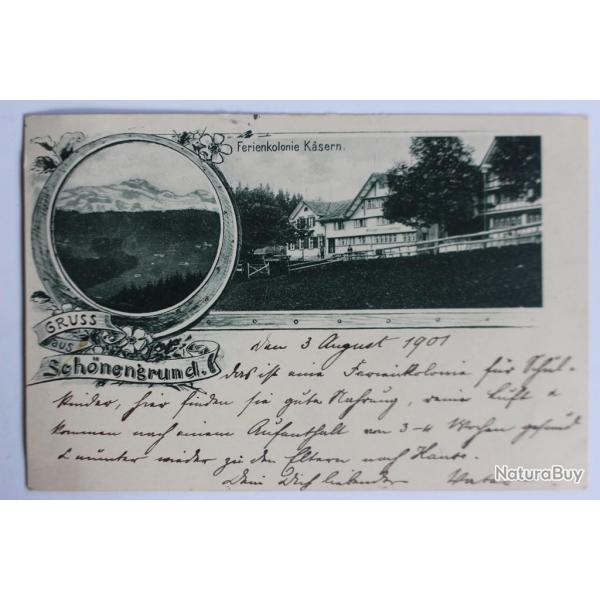 Ferienkolonie Käsern.
GRUSS
aus
Schönengrund.
Den 3 August 1901
das ist eine Ferienkolonie für Schul-
kinder, hier finden sie gute Nahrung, reine Luft &
kommen nach einem Aufenthalt von 3-4 Wochen gesund
& munter wieder zu den Eltern nach Hause.
Dein Dich liebender Vater
NaturaBuy